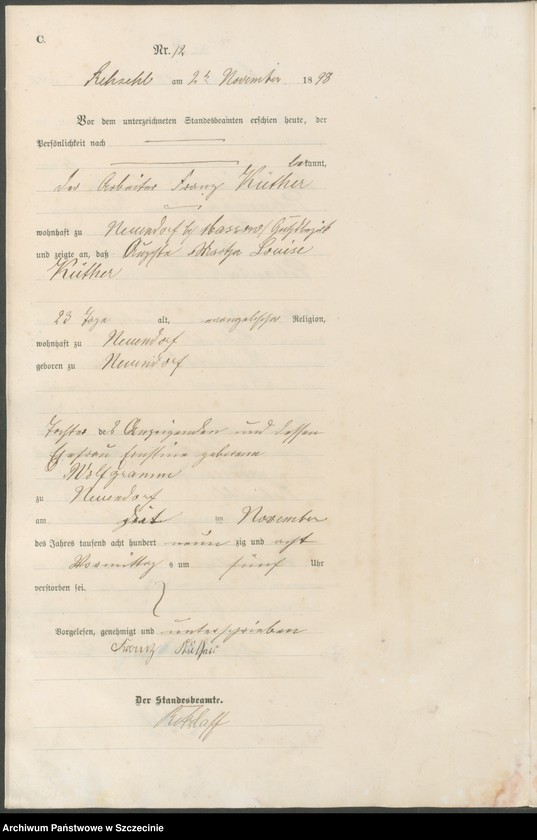 C.
Nr. 12
am 2ten November 1898
Vor dem unterzeichneten Standesbeamten erschien heute, der
Persönlichkeit nach
bekannt,
der Arbeiter Franz Küther
wohnhaft zu Neuendorf b/ Massow, Gutsbezirk
und zeigte an, daß Auguste Martha Louise
Küther
23 Tage alt, evangelischer Religion,
wohnhaft zu Neuendorf
geboren zu Neuendorf
Tochter des Anzeigenden und dessen
Ehefrau Ernstine geborene
Wolfgramm
zu Neuendorf
am November
des Jahres tausend acht hundert neunzig und acht
Vormittags um fünf Uhr
verstorben sei.
Vorgelesen, genehmigt und unterschrieben
Franz Küther
Der Standesbeamte.
Archiwum Państwowe w Szczecinie